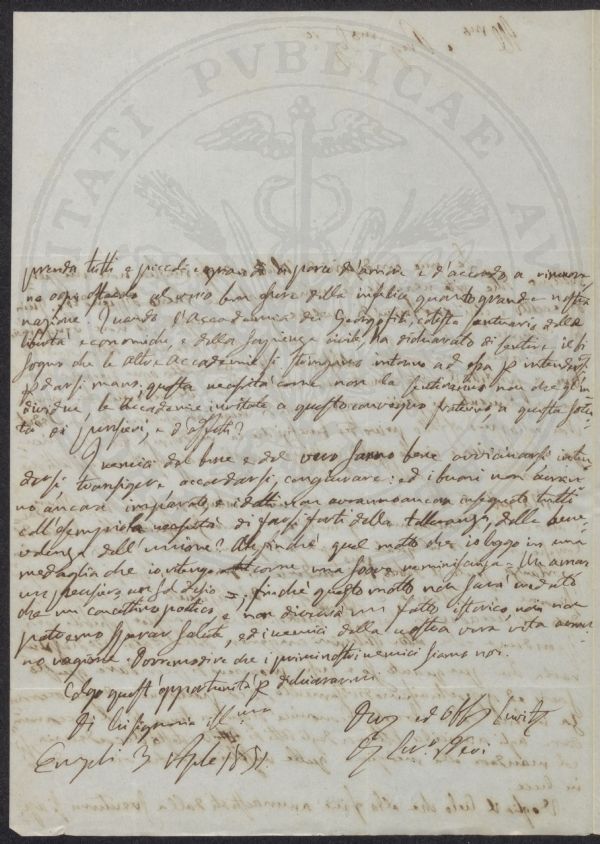 PROSPERITATI PVBLICAE AV
prenda tutti, e piccoli e grandi a d'amore e d'accordo, a rimuove
re ogni ostacolo al vero ben essere della infelice quanto grande nostra
nazione. Quando l'Accademia dei Georgofili, codesto santuario delle
libertà economiche, e della sapienza civile, ha dichiarato di sentire il bi
sogno che le altre Accademie si stringano intorno ad essa p intendersi
p darsi mano, questa necessità come non la sentiranno non che gl'in
dividui le Accademie invitate a questo convegno fraterno a questa
di pensieri, e d'affetti?
I nemici del bene e del vero sanno bene avvicinarsi inten
dersi, transigere accordarsi, congiurare: ed i buoni non avran
no ancora imparato, e i dotti non avranno ancora insegnato a tutti
coll'esempio la necessità di farsi forti della tolleranza, della bene
volenza dell'unione? finché quel motto che io leggo in una
medaglia che io ritengo come una soave reminiscenza = Un amor
un pensiero un sol desio =, finché questo motto non sarà
che un concettino poetico e non diverrà un fatto istorico, noi non
potremo sperar salute, ed i nemici della nostra vera vita avran
no ragione. Potremo dire che i primi nostri nemici siamo noi.
Colgo quest'opportunità p dichiararmi
Di lei signoria Ill ma
Dev ed Obb
Empoli 3 Aple 1851